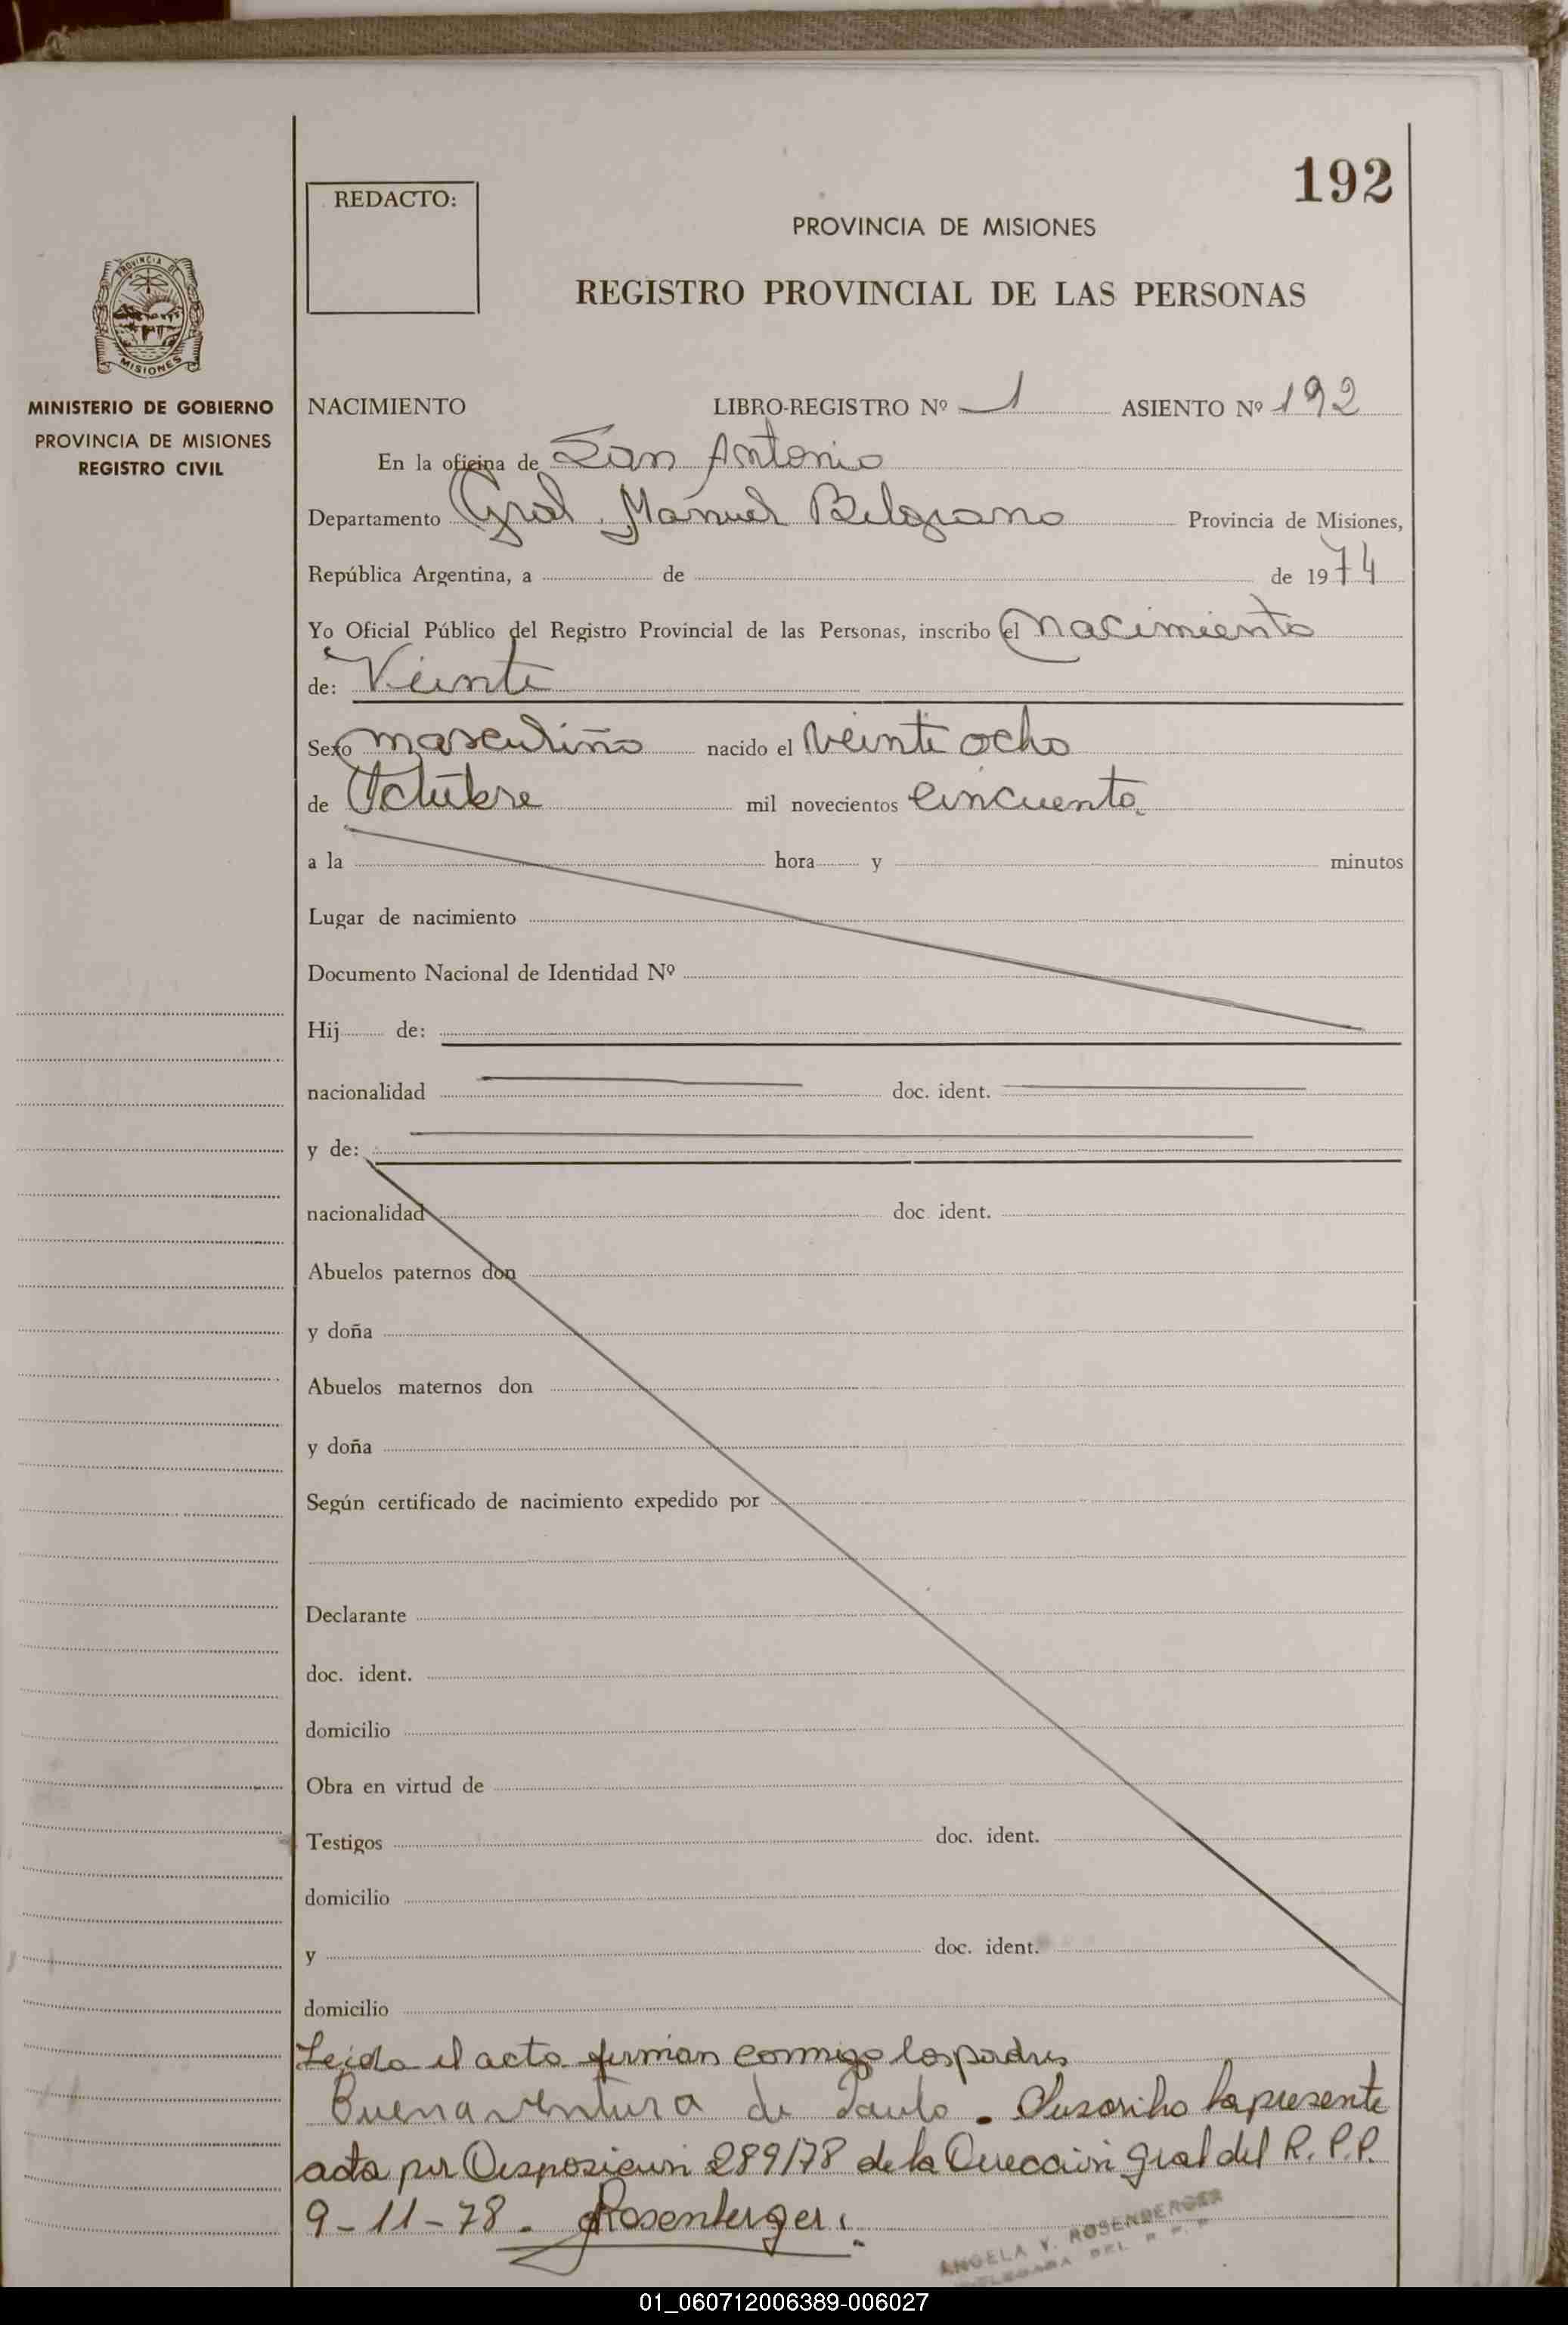 192
REDACTO:
PROVINCIA DE MISIONES
REGISTRO PROVINCIAL DE LAS PERSONAS
PROVINCIA DE
MISIONES
MINISTERIO DE GOBIERNO
PROVINCIA DE MISIONES
REGISTRO CIVIL
NACIMIENTO LIBRO-REGISTRO Nº 1 ASIENTO Nº 192
En la oficina de San Antonio
Departamento Gral. Manuel Belgrano Provincia de Misiones,
República Argentina, a de de 1974
Yo Oficial Público del Registro Provincial de las Personas, inscribo el nacimiento
de: Veinte
Sexo masculino nacido el veinte ocho
de Octubre mil novecientos cincuenta
a la hora y minutos
Lugar de nacimiento
Documento Nacional de Identidad Nº
Hij de:
nacionalidad doc. ident.
y de:
nacionalidad doc. ident.
Abuelos paternos don
y doña
Abuelos maternos don
y doña
Según certificado de nacimiento expedido por
Declarante
doc. ident.
domicilio
Obra en virtud de
Testigos doc. ident.
domicilio
y doc. ident.
domicilio
Leida el acta firman conmigo los padres
Buenaventura de Paulo. Suscribo la presente
acta por Disposicion 289/78 de la Direccion gral del R.P.P.
9-11-78. Rosenberger
ANGELA Y. ROSENBERGER
DELEGADA DEL R.P.P
01_060712006389-006027